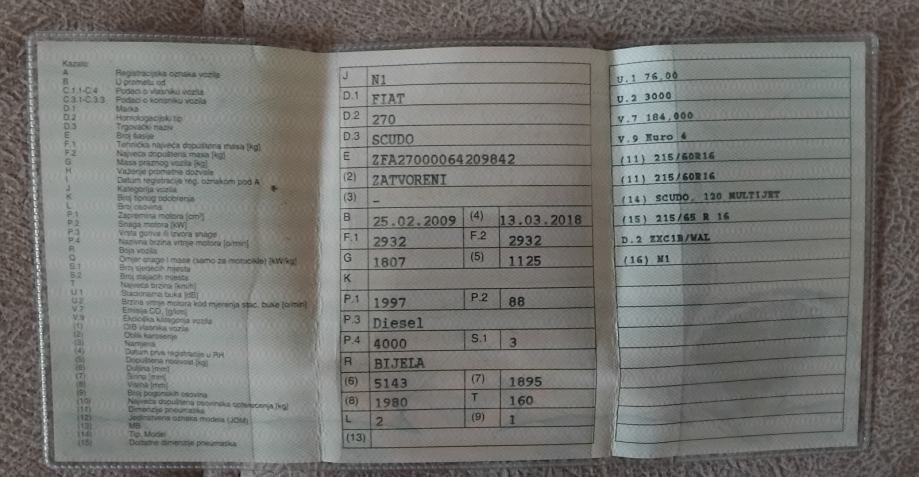 Kazalo:
A Registracijska oznaka vozila
B U prometu od
C.1.1-C.4 Podaci o vlasniku vozila
C.3.1-C.3.3 Podaci o korisniku vozila
D.1 Marka
D.2 Homologacijski tip
D.3 Trgovački naziv
E Broj šasije
F.1 Tehnička najveća dopuštena masa [kg]
F.2 Najveća dopuštena masa [kg]
G Masa praznog vozila [kg]
H Važenje prometne dozvole
I Datum registracije reg. oznakom pod A
J Kategorija vozila
K Broj tipnog odobrenja
L Broj osovina
P.1 Zapremina motora [cm³]
P.2 Snaga motora [kW]
P.3 Vrsta goriva ili izvora snage
P.4 Nazivna brzina vrtnje motora [o/min]
R Boja vozila
Q Omjer snage i mase (samo za motocikle) [kW/kg]
S.1 Broj sjedećih mjesta
S.2 Broj stajaćih mjesta
T Najveća brzina [km/h]
U.1 Stacionarna buka [dB]
U.2 Brzina vrtnje motora kod mjerenja stac. buke [o/min]
V.7 Emisija CO₂ [g/km]
V.9 Ekološka kategorija vozila
(1) OIB vlasnika vozila
(2) Oblik karoserije
(3) Namjena
(4) Datum prve registracije u RH
(5) Dopuštena nosivost [kg]
(6) Duljina [mm]
(7) Širina [mm]
(8) Visina [mm]
(9) Broj pogonskih osovina
(10) Najveća dopuštena osovinska opterećenja [kg]
(11) Dimenzije pneumatika
(12) Jedinstvena oznaka modela (JOM)
(13) MB
(14) Tip, Model
(15) Dodatne dimenzije pneumatika
J N1
D.1 FIAT
D.2 270
D.3 SCUDO
E ZFA27000064209842
(2) ZATVORENI
(3) -
B 25.02.2009 (4) 13.03.2018
F.1 2932 F.2 2932
G 1807 (5) 1125
K
P.1 1997 P.2 88
P.3 Diesel
P.4 4000 S.1 3
R BIJELA
(6) 5143 (7) 1895
(8) 1980 T 160
L 2 (9) 1
(13)
U.1 76,00
U.2 3000
V.7 184,000
V.9 Euro 4
(11) 215/60R16
(11) 215/60R16
(14) SCUDO, 120 MULTIJET
(15) 215/65 R 16
D.2 ZXC1B/WAL
(16) N1